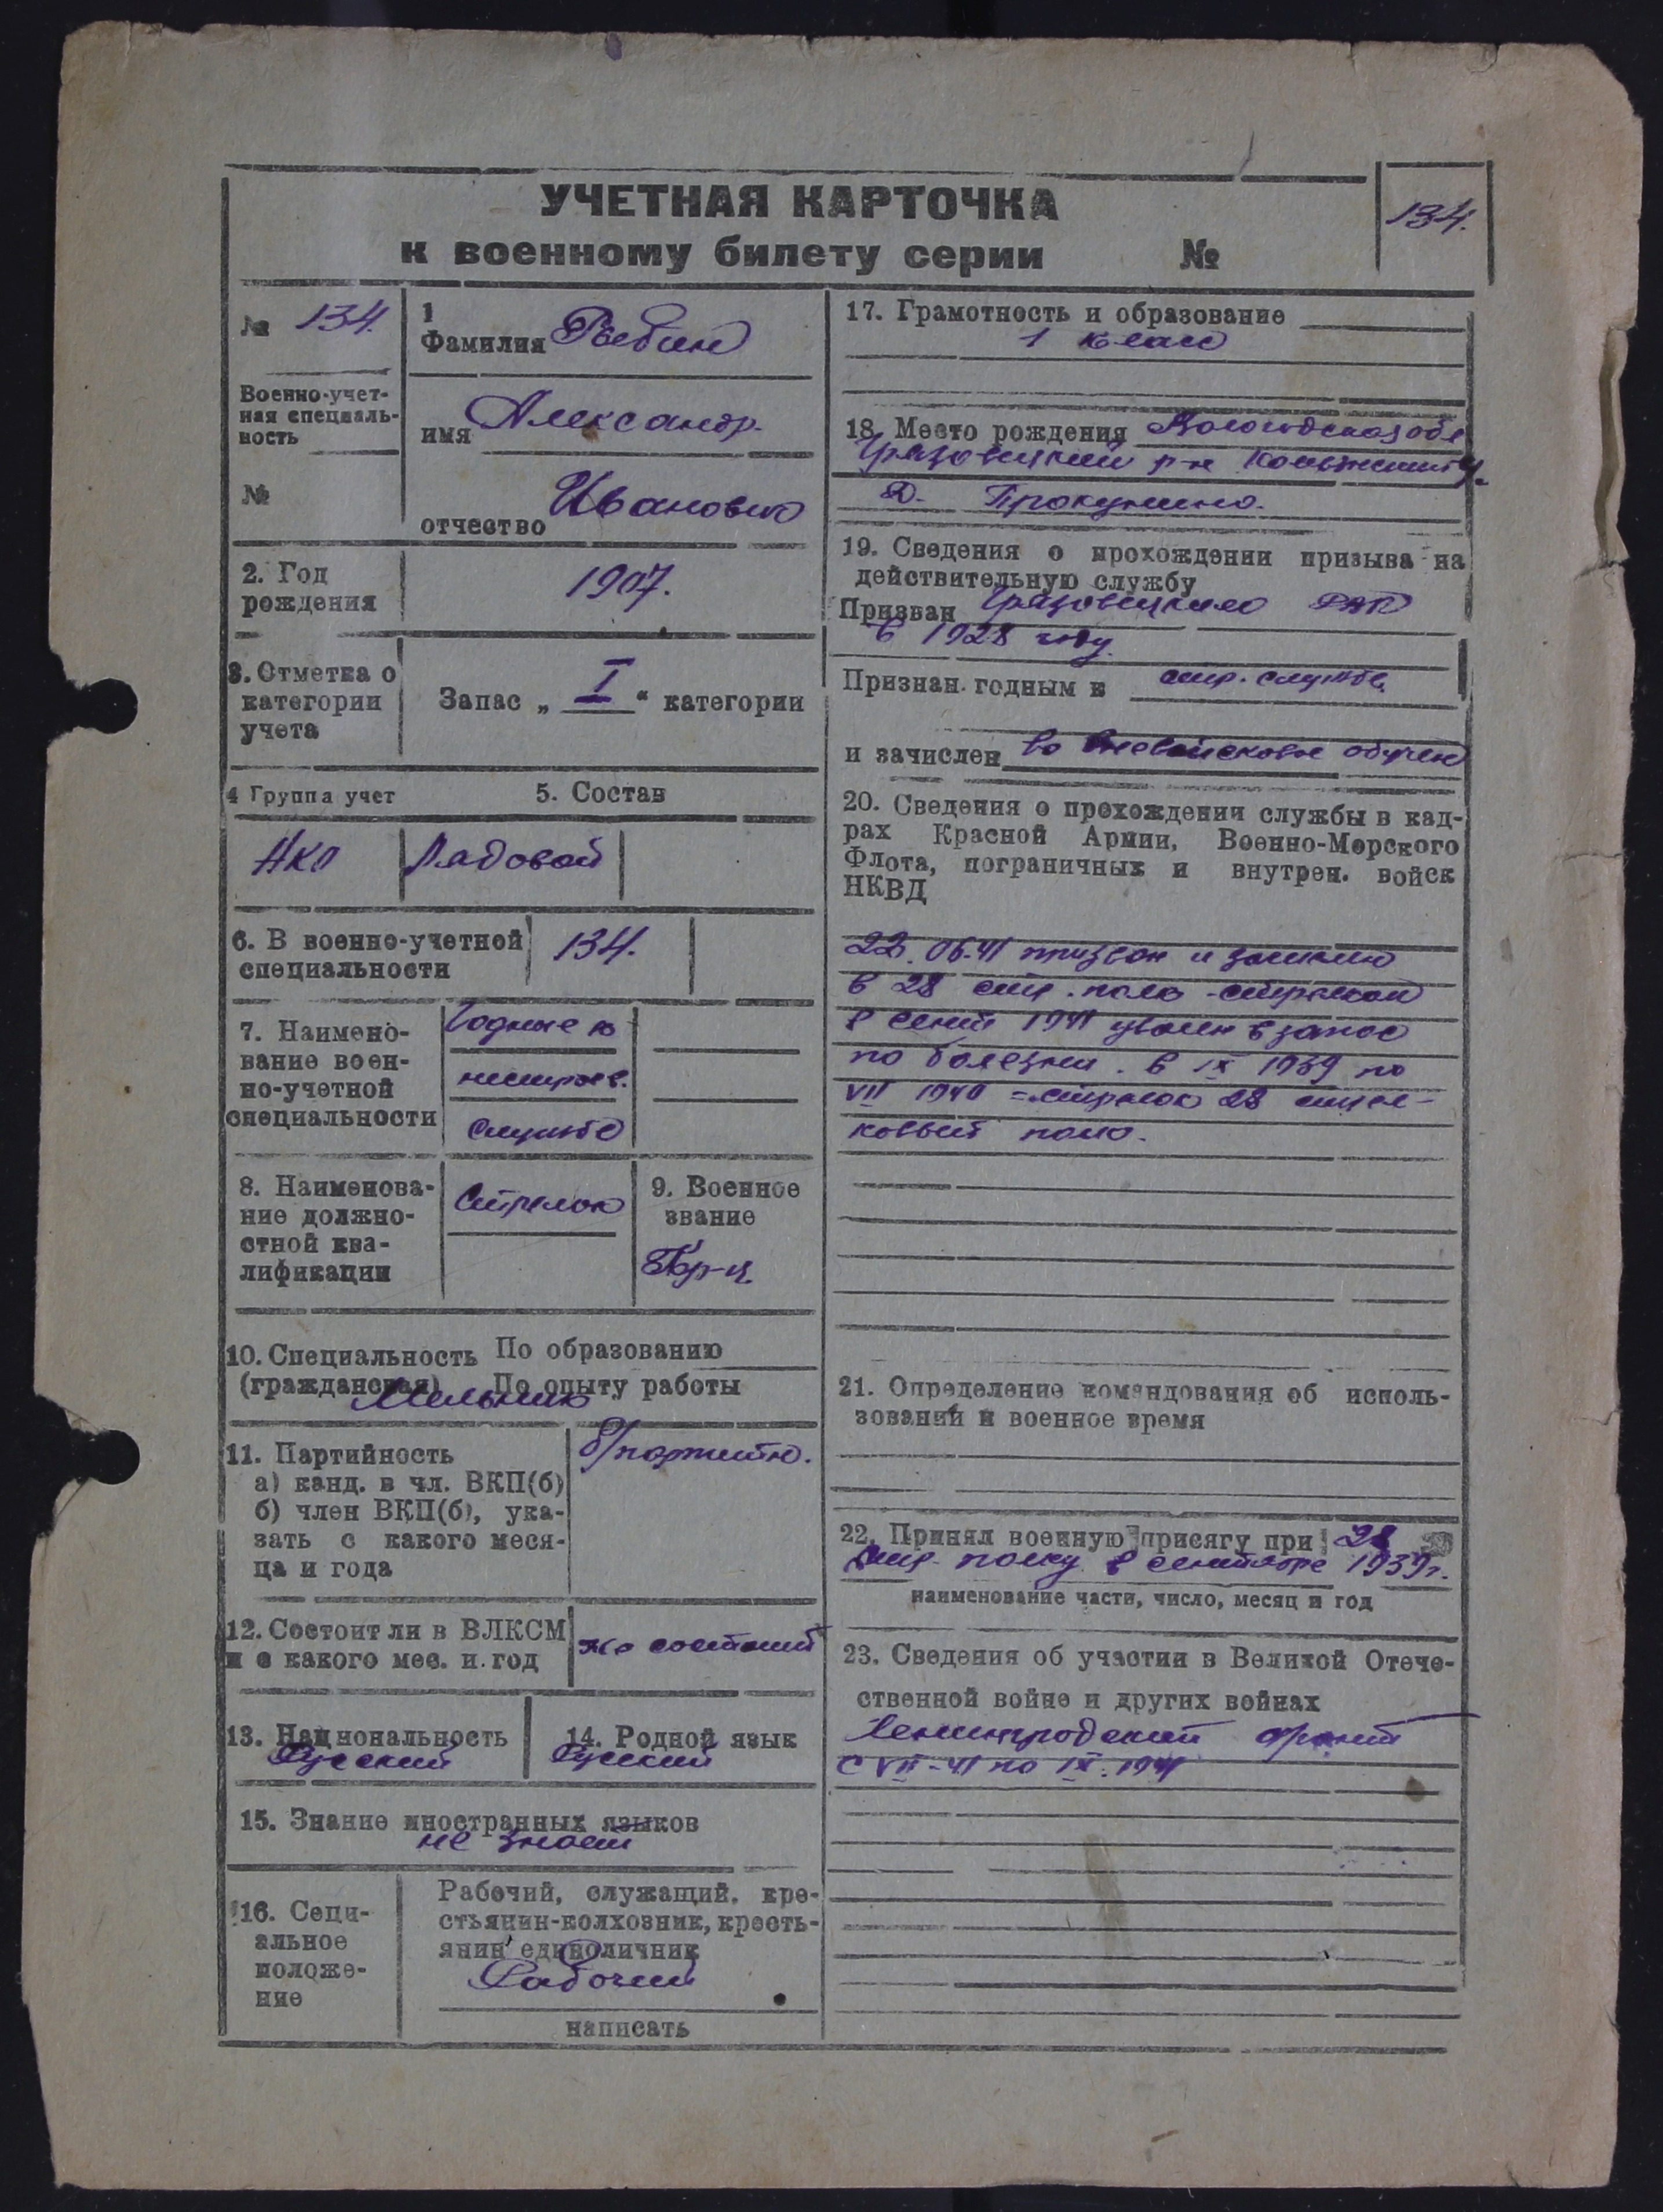 УЧЕТНАЯ КАРТОЧКА
к военному билету серии №
134.
№ 134.
Военно-учет-
ная специаль-
ность
№
1
Фамилия Рябин
имя Александр.
отчество Иванович
2. Год
рождения
1907.
3. Отметка о
категории
учета
Запас „ I “ категории
4 Группа учет
5. Состав
НКО
Рядовой
6. В военно-учетной
специальности
134.
7. Наимено-
вание воен-
но-учетной
специальности
Годные к
нестроев.
службе
8. Наименова-
ние должно-
стной ква-
лификации
Стрелок
9. Военное
звание
Кр-ц.
10. Специальность По образованию
(гражданская) По опыту работы
Мельник
11. Партийность
а) канд. в чл. ВКП(б)
б) член ВКП(б), ука-
зать с какого меся-
ца и года
б/партийн.
12. Состоит ли в ВЛКСМ
и с какого мес. и год
не состоит
13. Национальность
Русский
14. Родной язык
Русский
15. Знание иностранных языков
не знает
16. Соци-
альное
положе-
ние
Рабочий, служащий, кре-
стьянин-колхозник, кресть-
янин единоличник
Рабочий
написать
17. Грамотность и образование
1 класс
18. Место рождения Вологодская обл
Грязовецкий р-н
д. Прокунино.
19. Сведения о прохождении призыва на
действительную службу
Призван Грязовецким РВК
в 1928 году.
Признан годным к стр. службе.
и зачислен во вневойсковое обучен
20. Сведения о прохождении службы в кад-
рах Красной Армии, Военно-Морского
Флота, пограничных и внутрен. войск
НКВД
22.06.41 призван и зачислен
в 28 стр. полк - стрелком
в сент 1941 уволен в запас
по болезни. в IX 1939 по
VII 1940 - стрелок 28 стрел-
ковый полк.
21. Определение командования об исполь-
зовании и военное время
22. Принял военную присягу при 28
стр. полку в сентябре 1939г.
наименование части, число, месяц и год
23. Сведения об участии в Великой Отече-
ственной войне и других войнах
Ленинградский фронт
с VII-41 по IX.1941